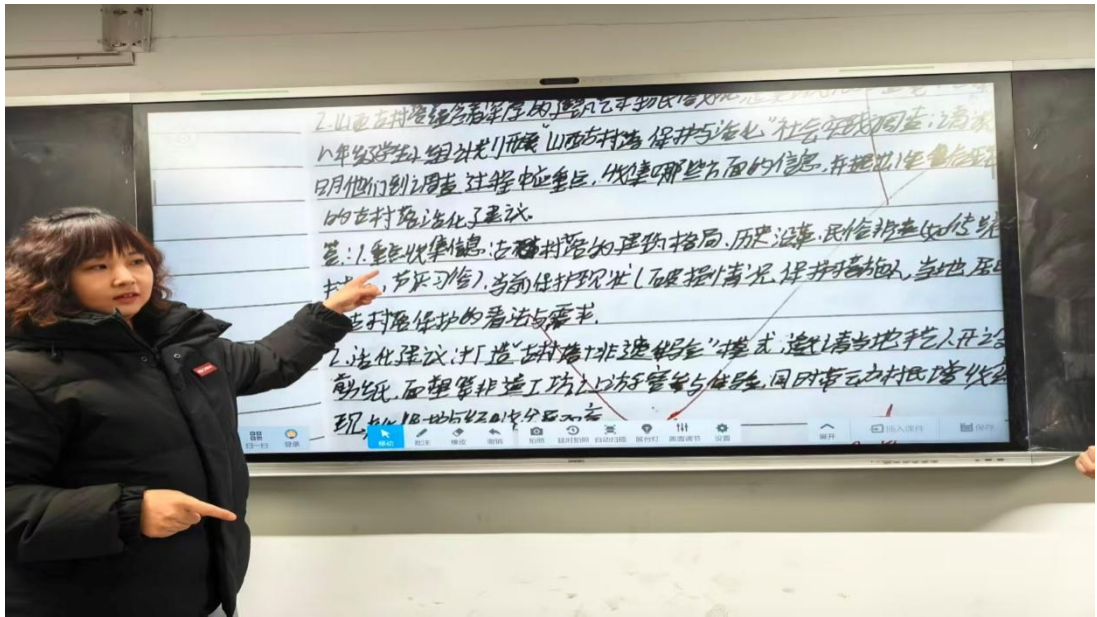 2.山西古村落蕴含着深厚的建筑艺术与民俗文化
八年级学生小组计划开展"山西古村落保护与活化"社会实践调查;请说
明他们到调查过程中应重点,收集哪些方面的信息,并提出1条
的古村落活化了建议.
答:1.重点收集信息:古村落的建筑格局、历史沿革、民俗
节庆习俗)、当前保护现状(破损情况、保护措施)、当地居民
古村落保护的看法与需求.
2.活化建议:打造"古村落+非遗体验"模式,邀请当地手艺人开设
剪纸、面塑等非遗工坊,让游客参与体验,同时带动村民增收
现
扫一扫 登录 移动 批注 橡皮 撤销 拍照 延时拍照 自动扫描 展台灯 画面调节 设置 展开 插入课件 保存